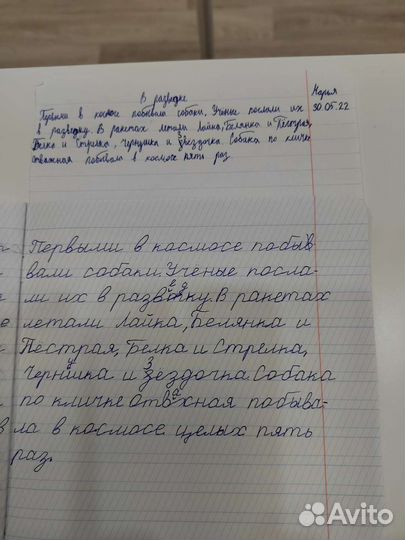 В разведке
Мария
30.05.22
Первыми в космосе побывали собаки. Учёные послали их
в разведку. В ракетах летали Лайка, Белянка и Пёстрая,
Белка и Стрелка, Чернушка и Звёздочка. Собака по кличке
Отважная побывала в космосе пять раз.
Первыми в космосе побыв
вали собаки. Учёные посла-
ли их в разведку. В ракетах
летали Лайка, Белянка и
Пёстрая, Белка и Стрелка,
Чернушка и Зездочка. Собака
по кличке Отважная побыва-
ла в космосе целых пять
раз.
Avito